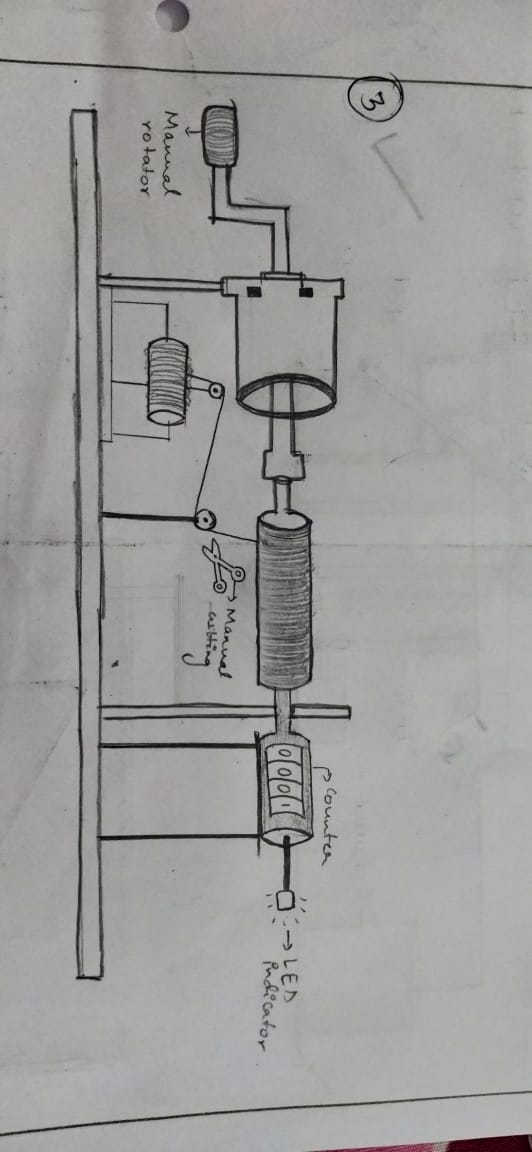 3
Manual
rotator
Manual
cutting
0001
counter
LED
indicator